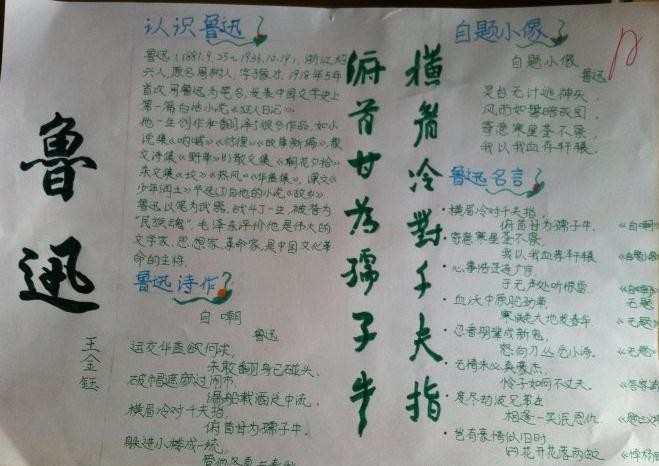 鲁迅
王金钰
认识鲁迅
鲁迅(1881.9.25~1936.10.19),浙江绍
六人,原名周树人,字豫才,1918年5年
首次用鲁迅为笔名,发表中国文学史上
第一篇白话小说《狂人日记》。
他一生创作和翻译了很多作品,如小
说集《呐喊》《彷徨》《故事新编》,散
文诗集《野草》,散文集《朝花夕拾》
杂文集《坟》《热风》《华盖集》,课文《
少年闰土》节选自他的小说《故乡》。
鲁迅以笔为武器,战斗了一生,被誉为
“民族魂”。毛泽东评价他是伟大的
文学家、思想家、革命家,是中国文化革
命的主将。
鲁迅诗作
自嘲
鲁迅
运交华盖欲何求,
未敢翻身已碰头,
破帽遮颜过闹市,
漏船载酒泛中流,
横眉冷对千夫指,
俯首甘为孺子牛,
躲进小楼成一统,
横眉冷對千夫指
俯首甘为孺子牛
自题小像
自题小像
鲁迅
灵台无计逃神矢
风雨如磐暗故园,
寄意寒星荃不察
我以我血荐轩辕,
鲁迅名言
·横眉冷对千夫指,
俯首甘为孺子牛, 《自嘲》
·寄意寒星荃不察
我以我血荐轩辕
·心事浩茫连广宇
于无声处听惊雷
·血沃中原肥劲草
寒凝大地发春华
·忍看朋辈成新鬼,
怒向刀丛觅小诗,
·无情未必真豪杰
怜子如何不丈夫,
·度尽劫波兄弟在
相逢一笑泯恩仇
·岂有豪情似旧时
花开花落两由之